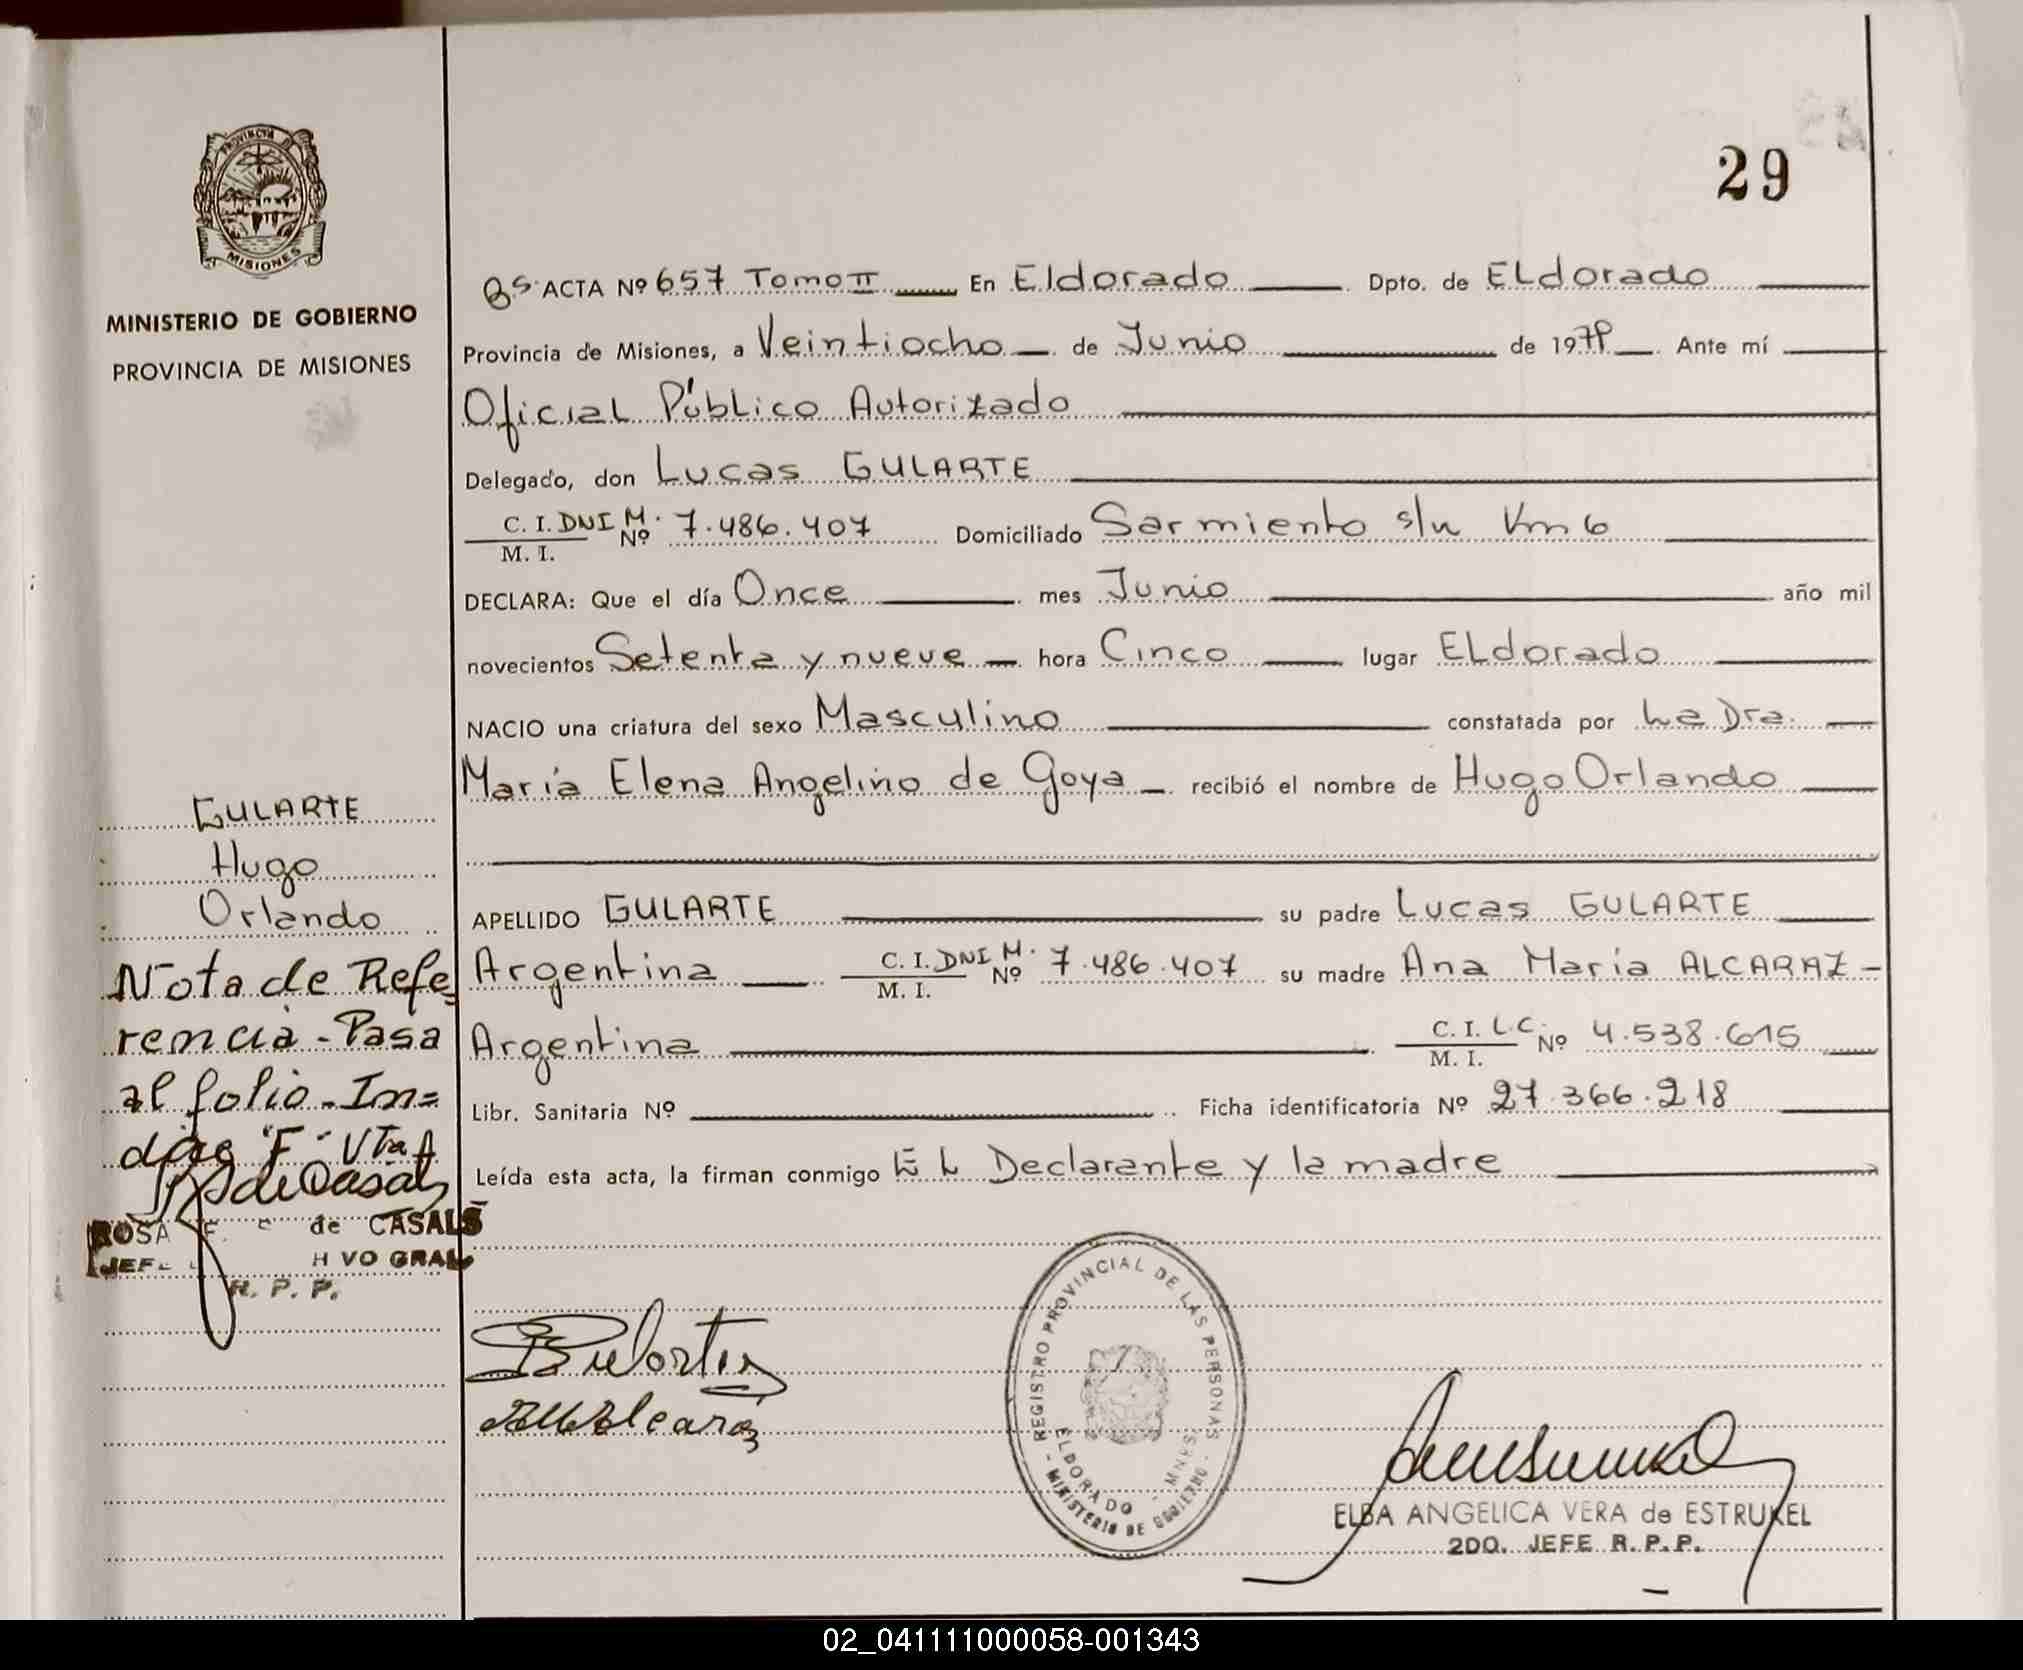 PROVINCIA DE
MISIONES
MINISTERIO DE GOBIERNO
PROVINCIA DE MISIONES
29
ACTA Nº 657 Tomo II En Eldorado Dpto. de ELdorado
Provincia de Misiones, a Veintiocho de Junio de 1979 Ante mí
Oficial Público Autorizado
Delegado, don Lucas GULARTE
C. I. DNI M. Nº 7.486.407 Domiciliado Sarmiento s/n Km 6
M. I.
DECLARA: Que el día Once mes Junio año mil
novecientos Setenta y nueve hora Cinco lugar ELdorado
NACIO una criatura del sexo Masculino constatada por La Dra.
María Elena Angelino de Goya recibió el nombre de Hugo Orlando
APELLIDO GULARTE su padre Lucas GULARTE
Argentina C. I. DNI M. Nº 7.486.407 su madre Ana María ALCARAZ
M. I.
Argentina C. I. L.C. Nº 4.538.615
M. I.
Libr. Sanitaria Nº Ficha identificatoria Nº 27.366.218
Leída esta acta, la firman conmigo EL Declarante y la madre
GULARTE
Hugo
Orlando
Nota de Refe=
rencia - Pasa
al folio - In=
dice "F" Vta
ROSA de CASALS
JEFE VO GRAL
R. P. P.
REGISTRO PROVINCIAL DE LAS PERSONAS
ELDORADO - MNES.
- MINISTERIO DE GOBIERNO -
ELBA ANGELICA VERA de ESTRUKEL
2DO. JEFE R. P. P.
02_041111000058-001343